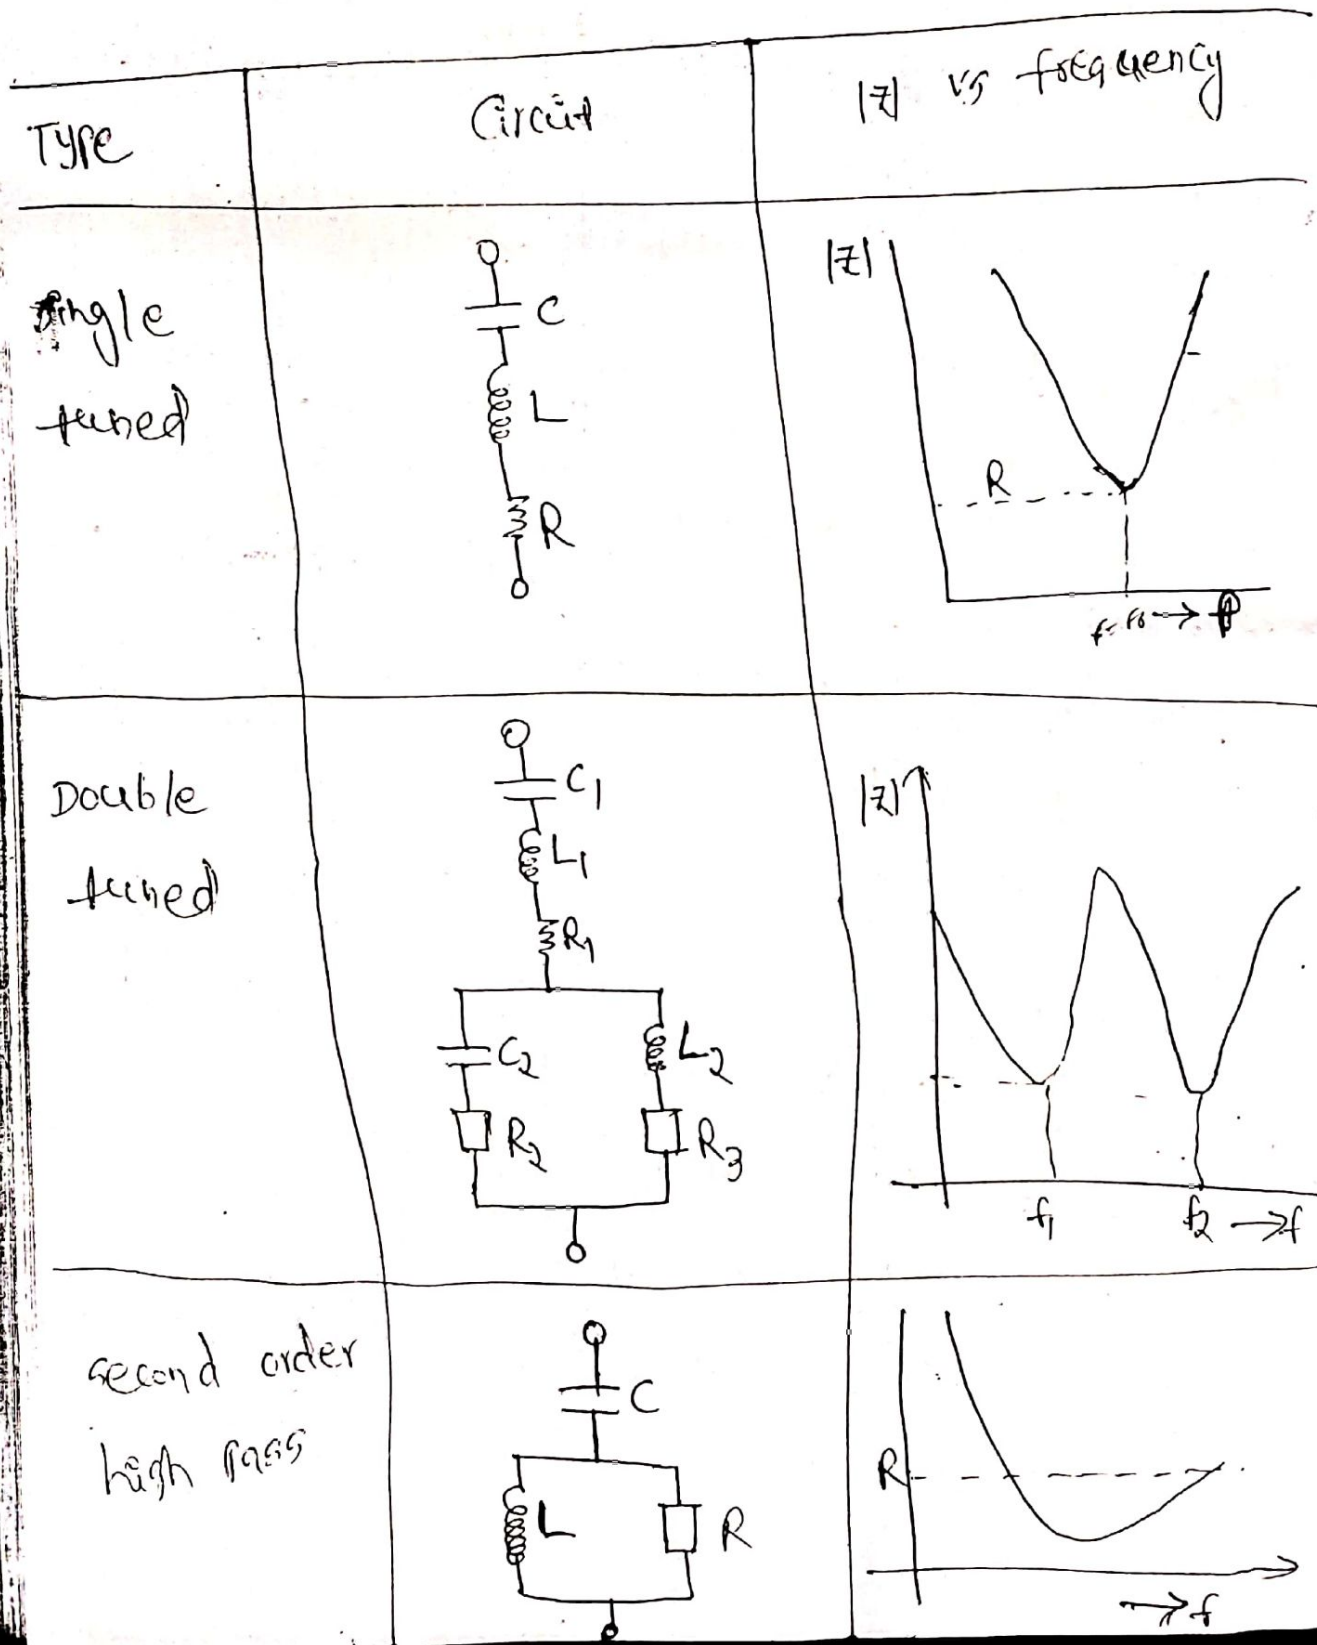 Type
Circuit
|Z| vs frequency
Single
tuned
C
L
R
|Z|
R
f=f0 → f
Double
tuned
C1
L1
R1
C2
L2
R2
R3
|Z|
f1
f2 → f
second order
high pass
C
L
R
R
→ f